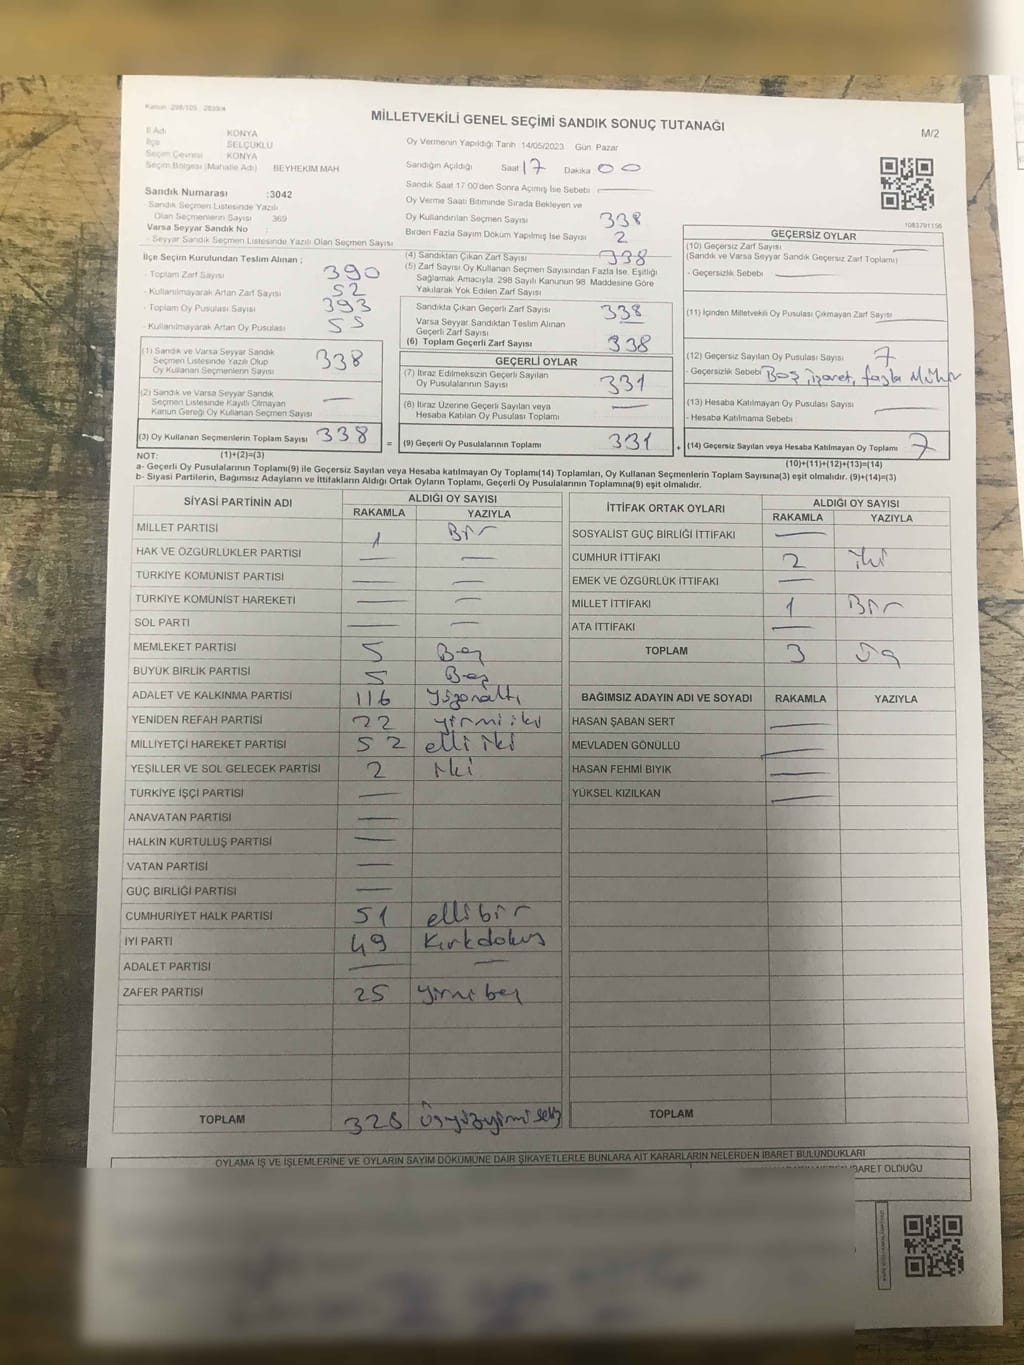 Kanun :298/105 : 2839/4
MİLLETVEKİLİ GENEL SEÇİMİ SANDIK SONUÇ TUTANAĞI
M/2
İl Adı KONYA
İlçe SELÇUKLU
Seçim Çevresi KONYA
Seçim Bölgesi (Mahalle Adı) BEYHEKİM MAH
Sandık Numarası :3042
- Sandık Seçmen Listesinde Yazılı
Olan Seçmenlerin Sayısı 369
Varsa Seyyar Sandık No :
- Seyyar Sandık Seçmen Listesinde Yazılı Olan Seçmen Sayısı
İlçe Seçim Kurulundan Teslim Alınan ;
- Toplam Zarf Sayısı 390
- Kullanılmayarak Artan Zarf Sayısı 52
- Toplam Oy Pusulası Sayısı 393
- Kullanılmayarak Artan Oy Pusulası 55
(1) Sandık ve Varsa Seyyar Sandık
Seçmen Listesinde Yazılı Olup
Oy Kullanan Seçmenlerin Sayısı 338
(2) Sandık ve Varsa Seyyar Sandık
Seçmen Listesinde Kayıtlı Olmayan
Kanun Gereği Oy Kullanan Seçmen Sayısı —
(3) Oy Kullanan Seçmenlerin Toplam Sayısı 338 =
Oy Vermenin Yapıldığı Tarih 14/05/2023 Gün Pazar
Sandığın Açıldığı Saat 17 Dakika 00
Sandık Saat 17:00'den Sonra Açılmış İse Sebebi —
Oy Verme Saati Bitiminde Sırada Bekleyen ve
Oy Kullandırılan Seçmen Sayısı 338
Birden Fazla Sayım Döküm Yapılmış İse Sayısı 2
(4) Sandıktan Çıkan Zarf Sayısı 338
(5) Zarf Sayısı Oy Kullanan Seçmen Sayısından Fazla İse, Eşitliği
Sağlamak Amacıyla, 298 Sayılı Kanunun 98. Maddesine Göre
Yakılarak Yok Edilen Zarf Sayısı
Sandıkta Çıkan Geçerli Zarf Sayısı 338
Varsa Seyyar Sandıktan Teslim Alınan
Geçerli Zarf Sayısı —
(6) Toplam Geçerli Zarf Sayısı 338
GEÇERLİ OYLAR
(7) İtiraz Edilmeksizin Geçerli Sayılan
Oy Pusulalarının Sayısı 331
(8) İtiraz Üzerine Geçerli Sayılan veya
Hesaba Katılan Oy Pusulası Toplamı —
(9) Geçerli Oy Pusulalarının Toplamı 331 +
1083791156
GEÇERSİZ OYLAR
(10) Geçersiz Zarf Sayısı —
(Sandık ve Varsa Seyyar Sandık Geçersiz Zarf Toplamı)
- Geçersizlik Sebebi —
(11) İçinden Milletvekili Oy Pusulası Çıkmayan Zarf Sayısı —
(12) Geçersiz Sayılan Oy Pusulası Sayısı 7
- Geçersizlik Sebebi Boş, işaret, fazla Mühür
(13) Hesaba Katılmayan Oy Pusulası Sayısı —
- Hesaba Katılmama Sebebi :
(14) Geçersiz Sayılan veya Hesaba Katılmayan Oy Toplamı 7
NOT: (1)+(2)=(3)
(10)+(11)+(12)+(13)=(14)
a- Geçerli Oy Pusulalarının Toplamı(9) ile Geçersiz Sayılan veya Hesaba katılmayan Oy Toplamı(14) Toplamları, Oy Kullanan Seçmenlerin Toplam Sayısına(3) eşit olmalıdır. (9)+(14)=(3)
b- Siyasi Partilerin, Bağımsız Adayların ve İttifakların Aldığı Ortak Oyların Toplamı, Geçerli Oy Pusulalarının Toplamına(9) eşit olmalıdır.
SİYASİ PARTİNİN ADI ALDIĞI OY SAYISI
RAKAMLA YAZIYLA
MİLLET PARTİSİ 1 Bir
HAK VE ÖZGÜRLÜKLER PARTİSİ — —
TÜRKİYE KOMÜNİST PARTİSİ — —
TÜRKİYE KOMÜNİST HAREKETİ — —
SOL PARTİ — —
MEMLEKET PARTİSİ 5 Beş
BÜYÜK BİRLİK PARTİSİ 5 Beş
ADALET VE KALKINMA PARTİSİ 116 yüzonaltı
YENİDEN REFAH PARTİSİ 22 yirmi iki
MİLLİYETÇİ HAREKET PARTİSİ 52 elli iki
YEŞİLLER VE SOL GELECEK PARTİSİ 2 iki
TÜRKİYE İŞÇİ PARTİSİ —
ANAVATAN PARTİSİ —
HALKIN KURTULUŞ PARTİSİ —
VATAN PARTİSİ —
GÜÇ BİRLİĞİ PARTİSİ —
CUMHURİYET HALK PARTİSİ 51 ellibir
İYİ PARTİ 49 Kırkdokuz
ADALET PARTİSİ — —
ZAFER PARTİSİ 25 yirmibeş
TOPLAM 328 üçyüzyirmi sekiz
İTTİFAK ORTAK OYLARI ALDIĞI OY SAYISI
RAKAMLA YAZIYLA
SOSYALİST GÜÇ BİRLİĞİ İTTİFAKI —
CUMHUR İTTİFAKI 2 iki
EMEK VE ÖZGÜRLÜK İTTİFAKI —
MİLLET İTTİFAKI 1 Bir
ATA İTTİFAKI —
TOPLAM 3 üç
BAĞIMSIZ ADAYIN ADI VE SOYADI RAKAMLA YAZIYLA
HASAN ŞABAN SERT —
MEVLADEN GÖNÜLLÜ —
HASAN FEHMİ BIYIK —
YÜKSEL KIZILKAN —
TOPLAM
OYLAMA İŞ VE İŞLEMLERİNE VE OYLARIN SAYIM DÖKÜMÜNE DAİR ŞİKAYETLERLE BUNLARA AİT KARARLARIN NELERDEN İBARET BULUNDUKLARI
İBARET OLDUĞU